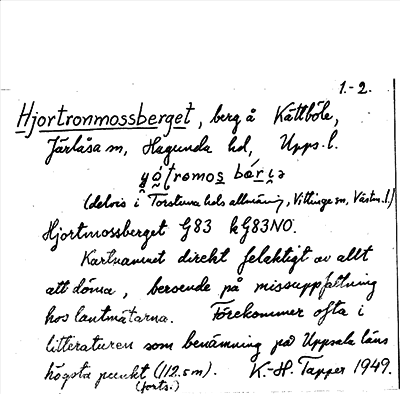 1.-2.
Hjortronmossberget, berg å Kättböle,
Järlåsa sn, Hagunda hd, Upps. l.
(delvis i Torstuna hds allmänning, Vittinge sn, Västm. l.)
Hjortmossberget G83 kG83NO.
Kartnamnet direkt felaktigt av allt
att döma, beroende på missuppfattning
hos lantmätarna. Förekommer ofta i
litteraturen som benämning på Uppsala läns
högsta punkt (112.5m). K.-H. Tapper 1949.
(forts.)